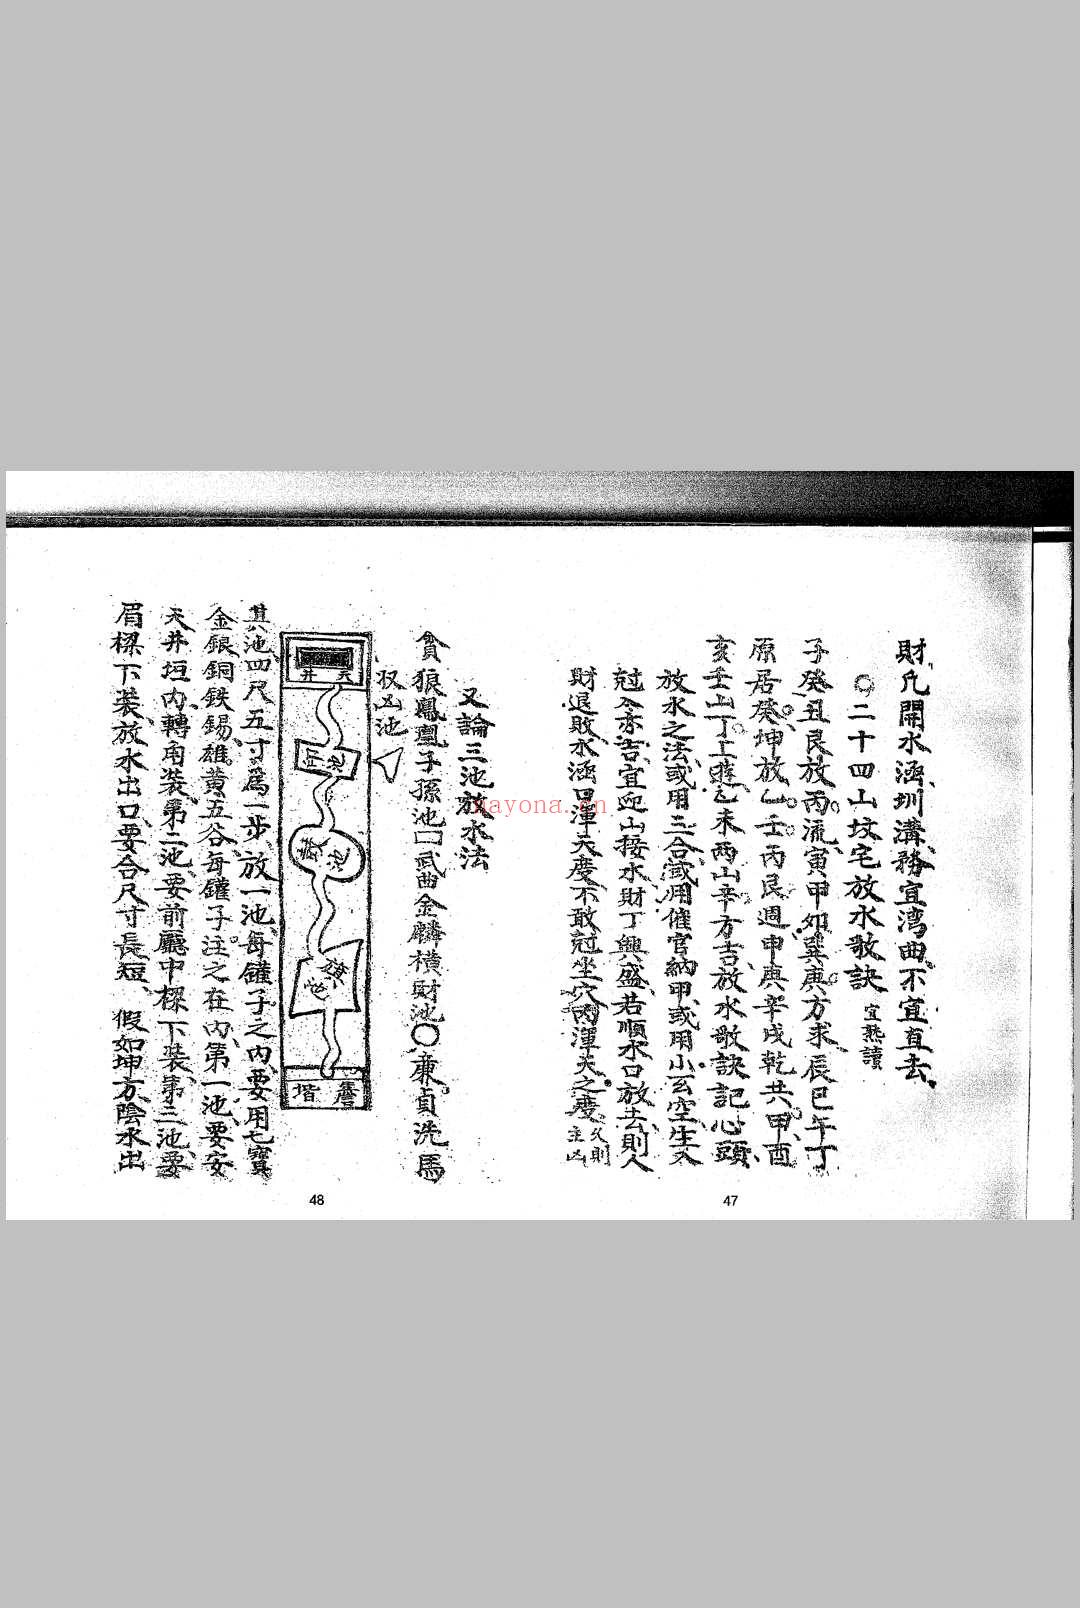 財凡開水涵圳溝務宜湾曲不宜直去
二十四山坟宅放水歌訣 宜熟讀
子癸丑艮放丙流寅甲如巽庚方求辰巳午丁
原居癸坤放乙壬丙艮週申庚辛戌乾共甲酉
亥壬山丁上遊乙未两山辛方吉放水歌訣記心頭
放水之法或用三合或用催官納甲或用小玄空生入
尅入亦吉宜迎山接水財丁興盛若順水口放去則人
財退敗水涵口渾天度不敢尅坐穴两渾天之度 欠則主凶
47
又論三池放水法
貪狼鳳凰子孫池口武曲金麟横財池〇廉貞洗馬
双凶池
天井
池
池
旗池
簷堦
其池四尺五寸爲一步放一池每罐子之内要用七寳
金銀銅鉄錫雄黄五谷每罐子注之在内第一池要安
天井垣内轉角装第二池要前廳中樑下装第三池要
眉樑下装放水出口要合尺寸長短 假如坤方陰水出
48
nayona.cn